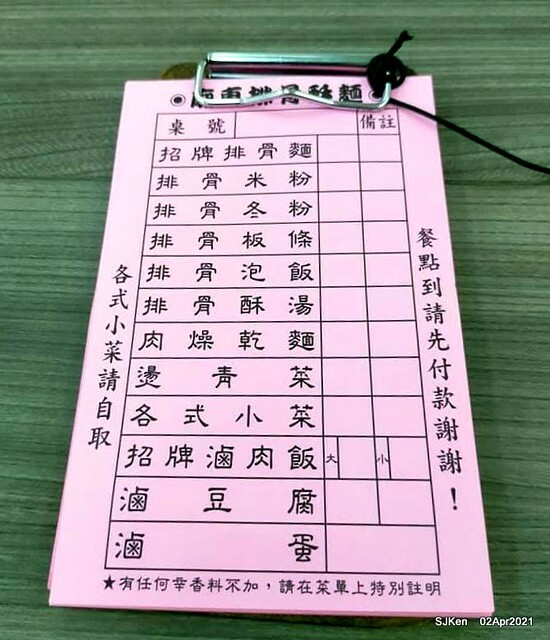 排骨酥麵
桌號 備註
招牌排骨麵
排骨米粉
排骨冬粉
排骨板條
排骨泡飯
排骨酥湯
肉燥乾麵
燙青菜
各式小菜
招牌滷肉飯 大 小
滷豆腐
滷蛋
★有任何辛香料不加，請在菜單上特別註明
各式小菜請自取
餐點到請先付款謝謝！
SJKen 02Apr2021